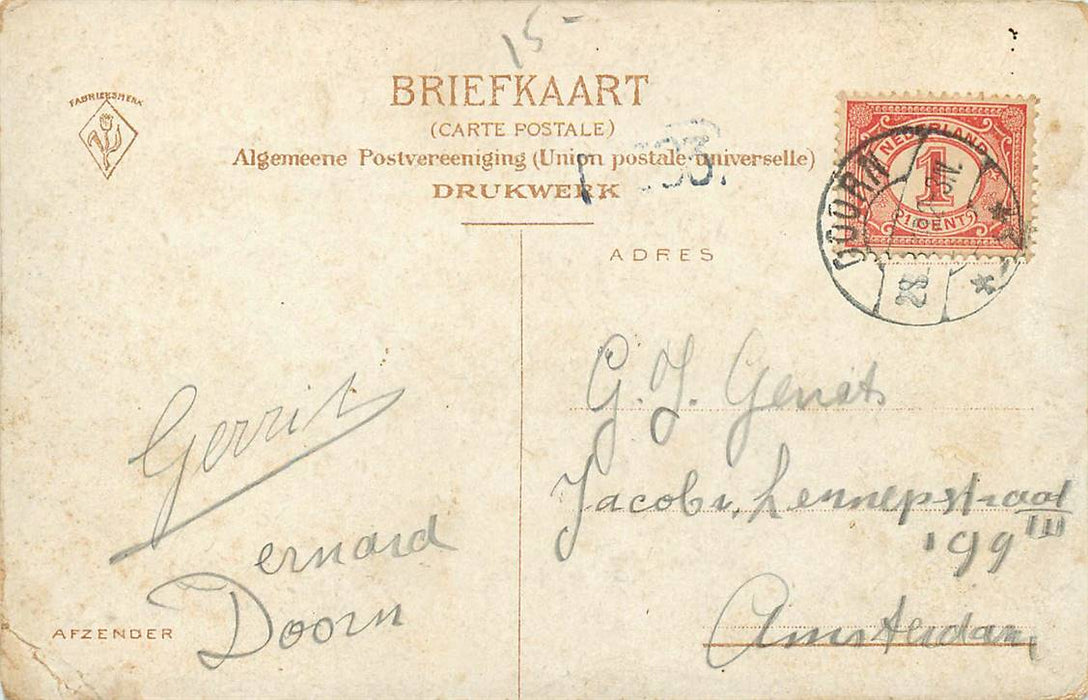 15-
FABRIEKSMERK
BRIEFKAART
(CARTE POSTALE)
Algemeene Postvereeniging (Union postale universelle)
DRUKWERK
NEDERLAND
1
1 CENT
DOORN
ADRES
G. J.
Jacob v. Lennepstraat
199 III
Amsterdam
Gerrit
ernard
Doorn
AFZENDER